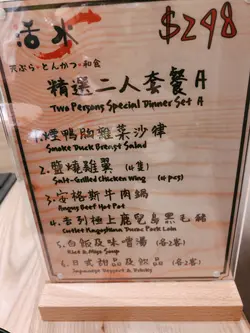 活水
$298
天ぷら・とんかつ・和食
精選二人套餐A
Two Persons Special Dinner Set A
1. 煙鴨胸雜菜沙律
Smoke Duck Breast Salad
2. 鹽燒雞翼 (4隻)
Salt-Grilled Chicken Wing (4 pcs)
3. 安格斯牛肉鍋
Angus Beef Hot Pot
4. 吉列極上鹿兒島黑毛豬
Cutlet Kagoshima Duroc Pork Loin
5. 白飯及味噌湯 (各2客)
Rice & Miso Soup
6. 日式甜品及飲品 (各2客)
Japanese Dessert & Drinks